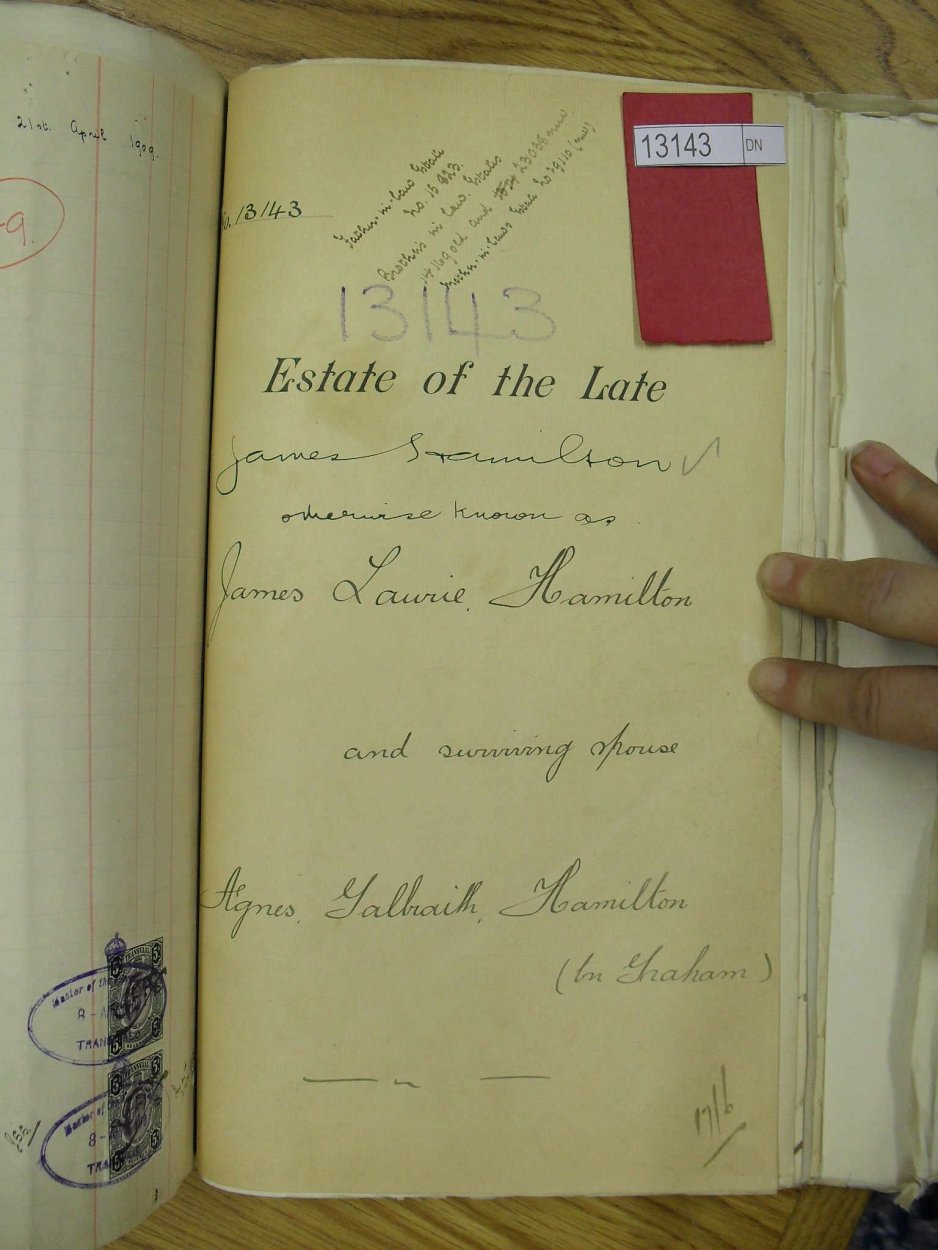 21st. April 1909.
9.
No. 13143
Father-in-Law Estate
No. 15823.
Brothers in Law. Estates
and 23038
Mother-in-Laws Estate No
13143
DN
13143
Estate of the Late
James Hamilton
otherwise known as
James Laurie Hamilton
and surviving spouse
Agnes Galbraith Hamilton
(bn Graham)
17/6
Master of the
8
TRAN
Master of the
8-
TRA